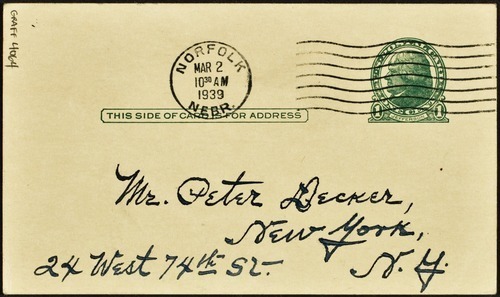 GRAFF 4064
NORFOLK
MAR 2
10 30 AM
1939
NEBR.
THIS SIDE OF CARD FOR ADDRESS
1 JEFFERSON 1
Mr. Peter Decker,
New York,
24 West 74th St. N.Y.